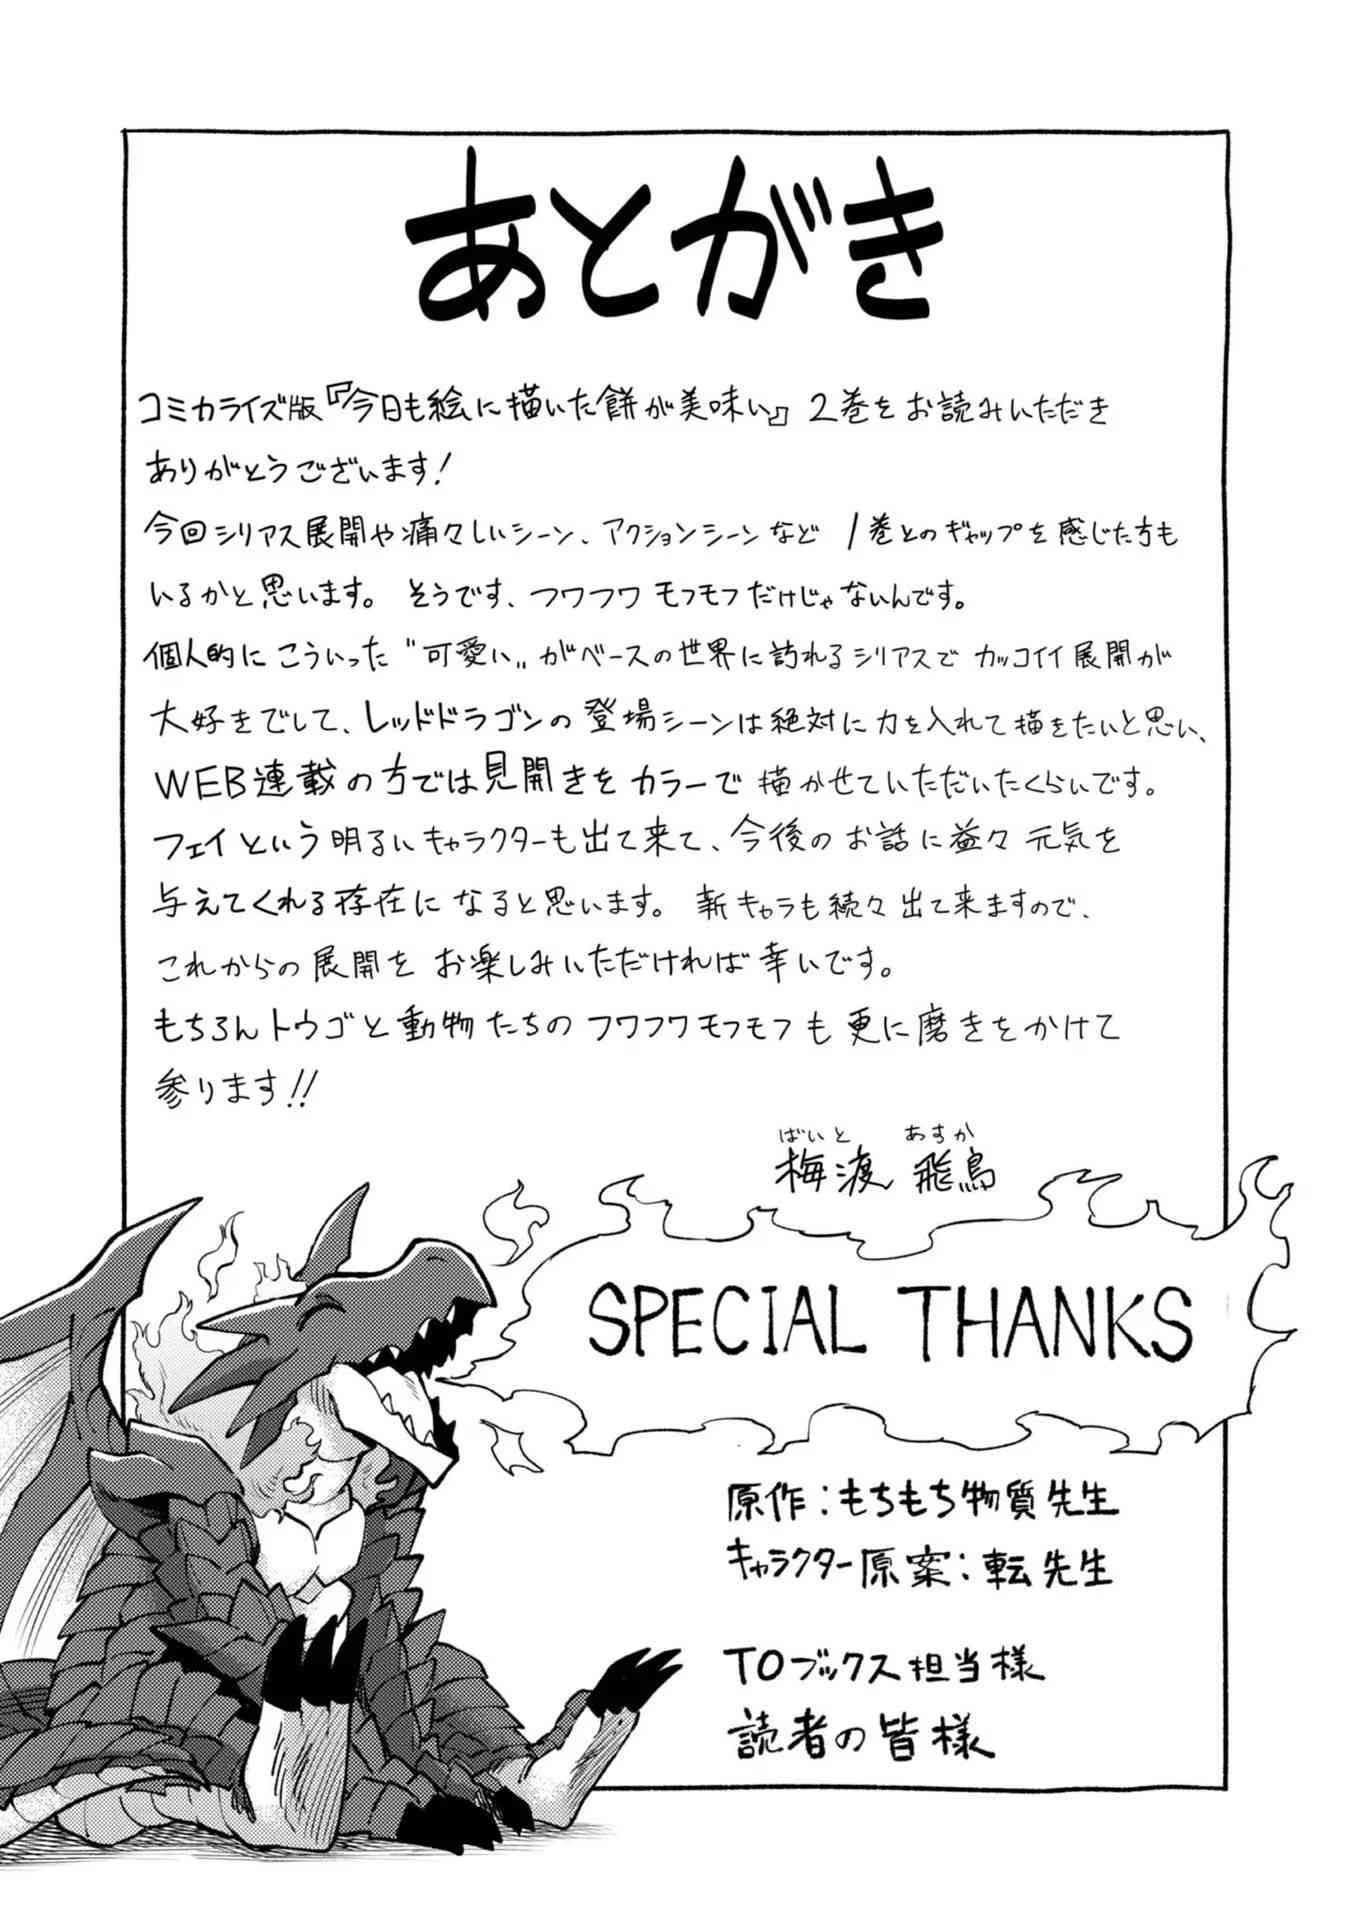 あとがき
コミカライズ版『今日も絵に描いた餅が美味い』2巻をお読みいただき
ありがとうございます!
今回シリアス展開や痛々しいシーン、アクションシーンなど 1巻とのギャップを感じた方も
いるかと思います。 そうです、フワフワ モフモフだけじゃないんです。
個人的にこういった〝可愛い〟がベースの世界に訪れるシリアスでカッコイイ展開が
大好きでして、レッドドラゴンの登場シーンは絶対に力を入れて描きたいと思い、
WEB連載の方では見開きをカラーで描かせていただいたくらいです。
フェイという明るいキャラクターも出て来て、今後のお話に益々元気を
与えてくれる存在になると思います。 新キャラも続々出て来ますので、
これからの展開をお楽しみいただければ幸いです。
もちろんトウゴと動物たちのフワフワモフモフも更に磨きをかけて
参ります!!
ばいと あすか
梅渡 飛鳥
SPECIAL THANKS
原作:もちもち物質先生
キャラクター原案:転先生
TOブックス担当様
読者の皆様